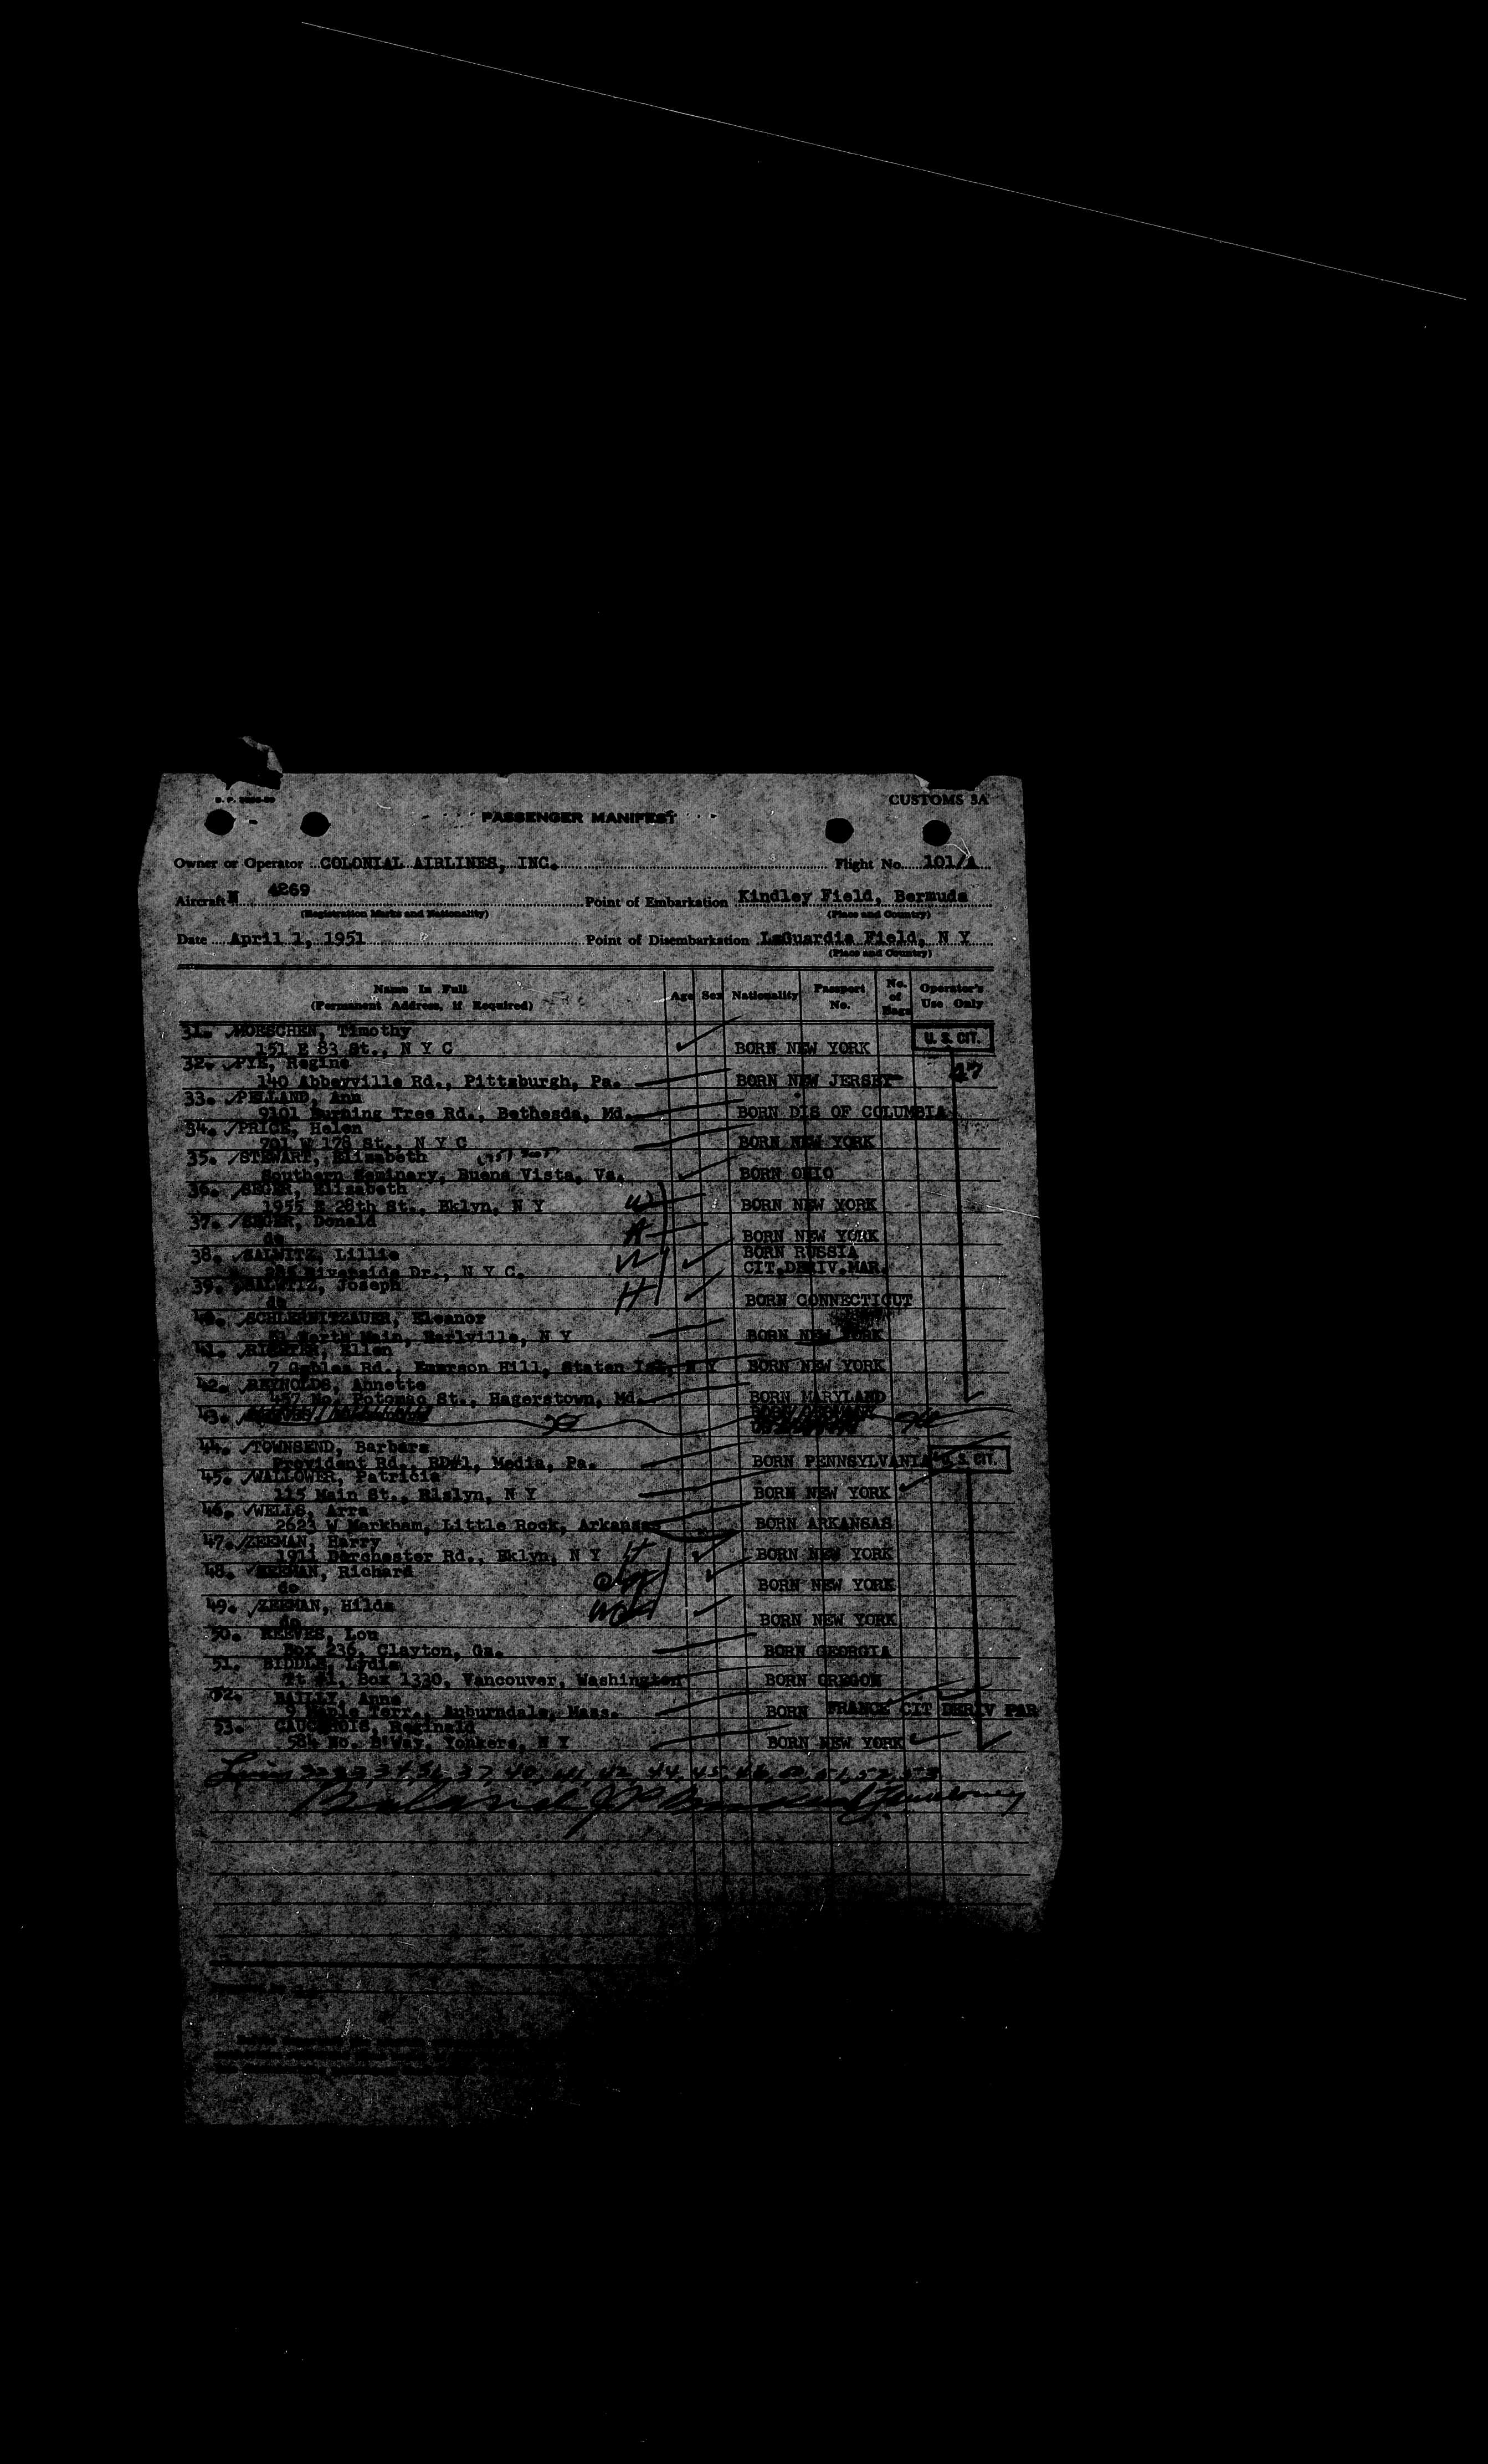 CUSTOMS 3A
PASSENGER MANIFEST
Owner or Operator COLONIAL AIRLINES, INC. Flight No. 101/A
Aircraft N 4269 Point of Embarkation Kindley Field, Bermuda
(Registration Marks and Nationality) (Place and Country)
Date April 1, 1951 Point of Disembarkation LaGuardia Field, N Y
(Place and Country)
Name In Full (Permanent Address, if Required) Age Sex Nationality Passport No. No. of Bags Operator's Use Only
31. MORSCHEN, Timothy
151 E 83 St., N Y C BORN NEW YORK U. S. CIT.
32. PYE, Regine
140 Abbeyville Rd., Pittsburgh, Pa. BORN NEW JERSEY 47
33. PELLAND, Ann
9101 Burning Tree Rd., Bethesda, Md. BORN DIS OF COLUMBIA
34. PRICE, Helen
701 W 178 St., N Y C BORN NEW YORK
35. STEWART, Elizabeth
Southern Seminary, Buena Vista, Va. BORN OHIO
36. SEGER, Elizabeth
1955 E 28th St., Bklyn, N Y W BORN NEW YORK
37. SEGER, Donald
do H BORN NEW YORK
38. Lillie W BORN RUSSIA
Riverside Dr., N Y C. CIT.DERIV.MAR.
39. Joseph
do H BORN CONNECTICUT
40. Eleanor
North Main, Earlville, N Y BORN NEW YORK
41. Ellen
7 Gables Rd., Emerson Hill, Staten Isl, N Y BORN NEW YORK
42. REYNOLDS, Annette
457 No. Potomac St., Hagerstown, Md. BORN MARYLAND
43.
44. TOWNSEND, Barbara
Provident Rd., RD#1, Media, Pa. BORN PENNSYLVANIA U. S. CIT.
45. WALLOWER, Patricia
115 Main St., Rislyn, N Y BORN NEW YORK
46. WELLS, Arra
2623 W Markham, Little Rock, Arkansas BORN ARKANSAS
47. ZEEMAN, Harry
1911 Dorchester Rd., Bklyn, N Y H BORN NEW YORK
48. ZEEMAN, Richard
do BORN NEW YORK
49. ZEEMAN, Hilda
do BORN NEW YORK
50. REEVES, Lou
Box 236, Clayton, Ga. BORN GEORGIA
51. BIDDLE, Lydia
Rt #1, Box 1330, Vancouver, Washington BORN OREGON
52. BAILLY, Anne
9 Maple Terr., Auburndale, Mass. BORN FRANCE CIT DERIV PAR
53. Reginald
584 No. B'Way, Yonkers, N Y BORN NEW YORK
37, 40, 41, 42, 44, 45, 51, 52, 53